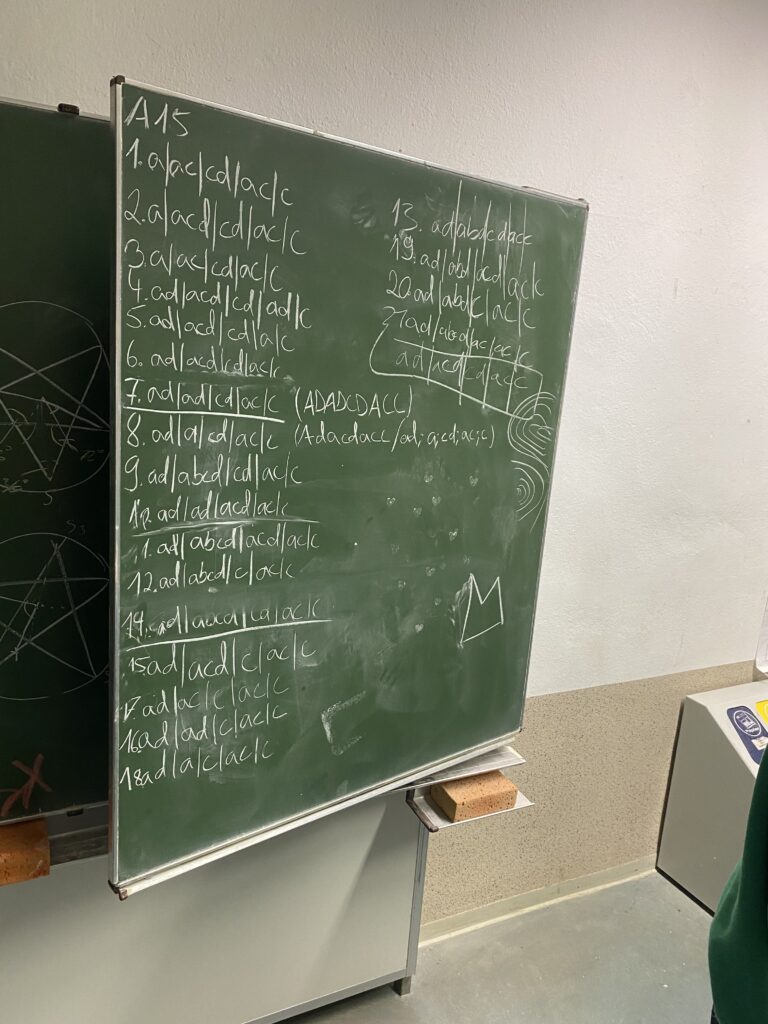 A15
1. a/ac/cd/ac/c
2. a/acd/cd/ac/c
3. a/ac/cd/ac/c
4. ad/acd/cd/ad/c
5. ad/acd/cd/a/c
6. ad/acd/cd/ac/c
7. ad/ad/cd/ac/c (ADADCDACC)
8. ad/a/cd/ac/c (Adacdacc/ad; a; cd; ac; c)
9. ad/abcd/cd/ac/c
ad/ad/acd/ac/c
1. ad/abcd/acd/ac/c
12. ad/abcd/c/ac/c
15 ad/acd/c/ac/c
17. ad/ac/c/ac/c
16 ad/ad/c/ac/c
18 ad/a/c/ac/c
13. ad/abd/cd/ac/c
19. ad/abd/acd/ac/c
20 ad/abd/c/ac/c
21 ad/abcd/ac/ac/c
ad/acd/cd/ac/c